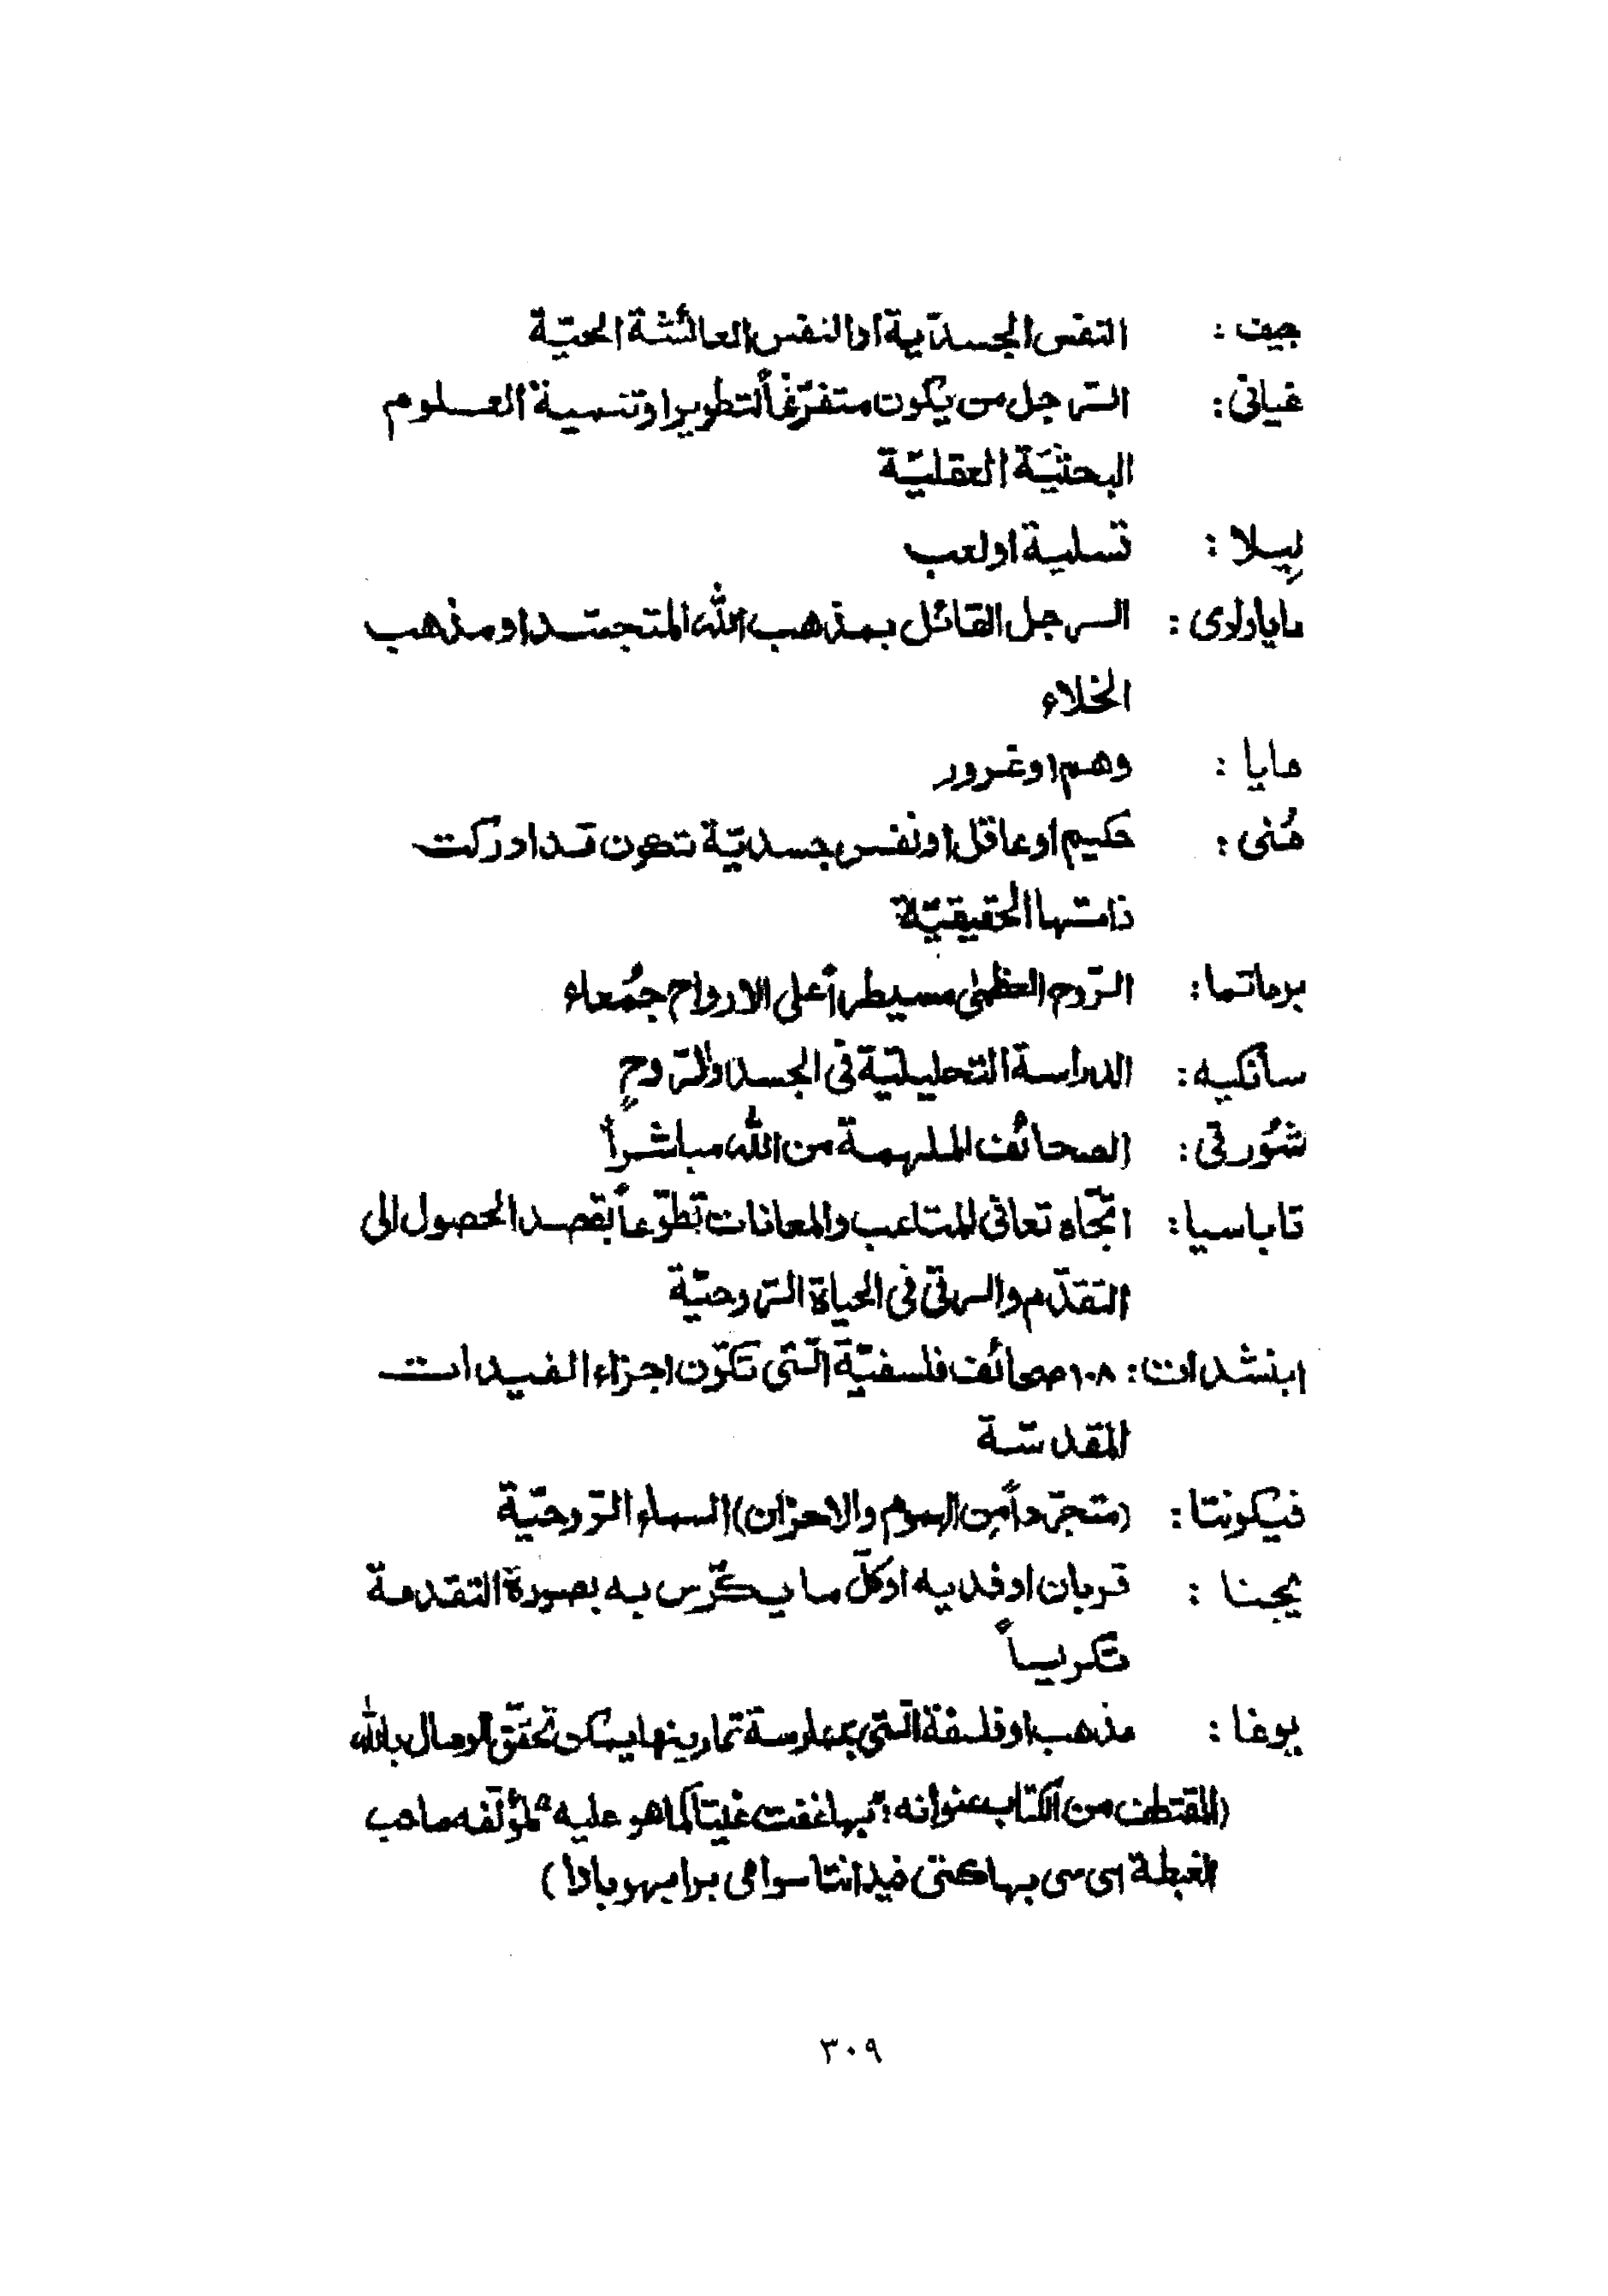 جيف : النفس الجسدّية او النفس العائشة الحيّة
غيانى : الرّجل من يكون متفرّغاً لتطوير او تنمية العلوم
البحثيّة العقليّة
ليلا : تسلية او لعب
مايا وادى : الرجل القائل بمذهب الله المتجسّد او مذهب
الخلاء
مايا : وهم او غرور
مُنى : حكيم او عاقل او نفس جسديّة تكون قد ادركت
ذاتها الحقيقيّة
برماتما : الرّوح العظمٰى مسيطراً على الارواح جُمعاء
سانكيه : الدراسة التحليليّة فى الجسد والرّوحٍ
شُورتى : الصحائف الملهمة من الله مباشراً
تاباسيا : اتّجاه تعانى المتاعب والمعانات تطوّعاً بقصد الحصول الى
التقدّم والرقى فى الحياة الرّوحيّة
ابنشدات : ١٠٨ صحائف فلسفيّة الّتى تكوّن اجزاء الفيدات
المقدسّة
فيكونتا : (متجرّداً من الهموم والاحزان) السماء الرّوحيّة
يجنا : قربان او فديه او كلّ ما يكرّس به بصورة التقدمة
تكريساً
يوغا : مذهب او فلسفة الّتى بممارسة تمارينها يمكن تحقّق الوصال بالله
(المقتطف من الكتاب عنوانه : "بهاغفت غليتا كما هو عليه" لمؤلّفه صاحب
الغبطة اى سى بهاكتى فيدانتا سوامى برابهوبادا)
٣٠٩